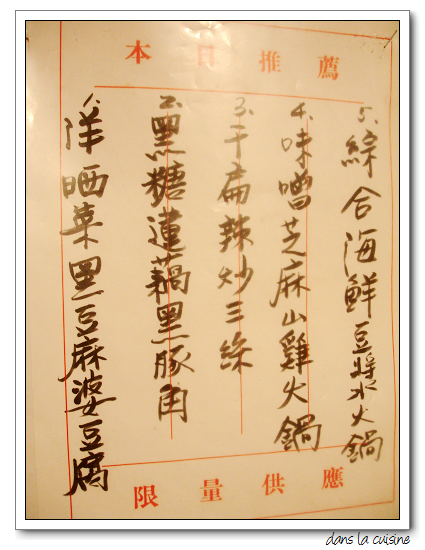 本日推薦
1.洋晒菜黑豆麻婆豆腐
2.黑糖蓮藕黑豚肉
3.干扁辣炒三絲
4.味噌芝麻山雞火鍋
5.綜合海鮮豆漿火鍋
限量供應
dans la cuisine